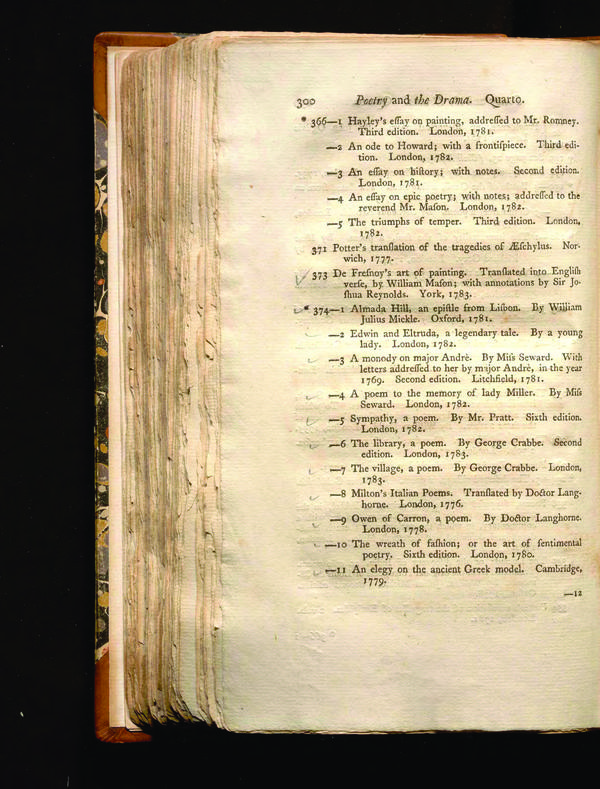 300 Poetry and the Drama. Quarto.
* 366—1 Hayley's eſſay on painting, addreſſed to Mr. Romney.
Third edition. London, 1781.
—2 An ode to Howard; with a frontiſpiece. Third edi-
tion. London, 1782.
—3 An eſſay on hiſtory; with notes. Second edition.
London, 1781.
—4 An eſſay on epic poetry; with notes; addreſſed to the
reverend Mr. Maſon. London, 1782.
—5 The triumphs of temper. Third edition. London,
1782.
371 Potter's tranſlation of the tragedies of Æſchylus. Nor-
wich, 1777.
373 De Freſnoy's art of painting. Tranſlated into Engliſh
verſe, by William Maſon; with annotations by Sir Jo-
ſhua Reynolds. York, 1783.
* 374—1 Almada Hill, an epiſtle from Liſbon. By William
Julius Mickle. Oxford, 1781.
—2 Edwin and Eltruda, a legendary tale. By a young
lady. London, 1782.
—3 A monody on major Andrè. By Miſs Seward. With
letters addreſſed to her by major Andrè, in the year
1769. Second edition. Litchfield, 1781.
—4 A poem to the memory of lady Miller. By Miſs
Seward. London, 1782.
—5 Sympathy, a poem. By Mr. Pratt. Sixth edition.
London, 1782.
—6 The library, a poem. By George Crabbe. Second
edition. London, 1783.
—7 The village, a poem. By George Crabbe. London,
1783.
—8 Milton's Italian Poems. Tranſlated by Doctor Lang-
horne. London, 1776.
—9 Owen of Carron, a poem. By Doctor Langhorne.
London, 1778.
—10 The wreath of faſhion; or the art of ſentimental
poetry. Sixth edition. London, 1780.
—11 An elegy on the ancient Greek model. Cambridge,
1779.
—12